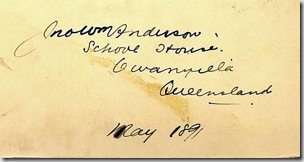 Jno Wm Anderson.
School House.
Owanyilla
Queensland
May 1891